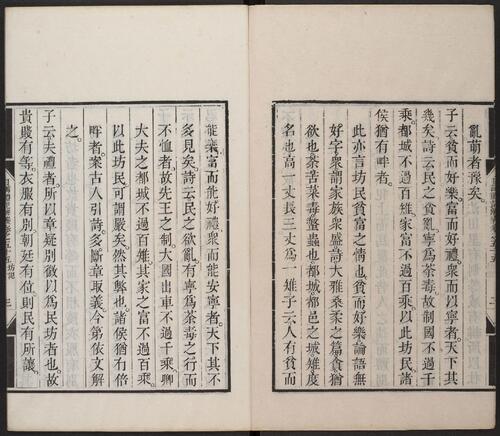 亂萌者豫矣。
子云貧而好樂富而好禮。衆而以寧者。天下其
幾矣詩云民之貪亂。寧爲荼毒。故制國不過千
乘。都城不過百雉。家富不過百乘以此坊民諸
侯猶有畔者。
此亦言坊民貧富之情也。貧而好樂論語無
好字衆謂家族衆盛詩大雅桑柔之篇貪猶
欲也荼苦菜毒螫蟲也都城都邑之城雉度
名也高一丈長三丈爲一雉子云人有貧而
能樂富而能好禮衆而能安寧者。天下其不
多見矣詩云民之欲亂。有寧爲荼毒之行而
不恤者故先王之制大國出車不過千乘。卿
大夫之都城不過百雉其家之富不過百乘。
以此坊民可謂嚴矣。然其弊也。諸侯猶有倍
畔者。案古人引詩多斷章取義今第依文解
之。
子云夫禮者。所以章疑別微以爲民坊者也。故
貴賤有等。衣服有別。朝廷有位則民有所讓。